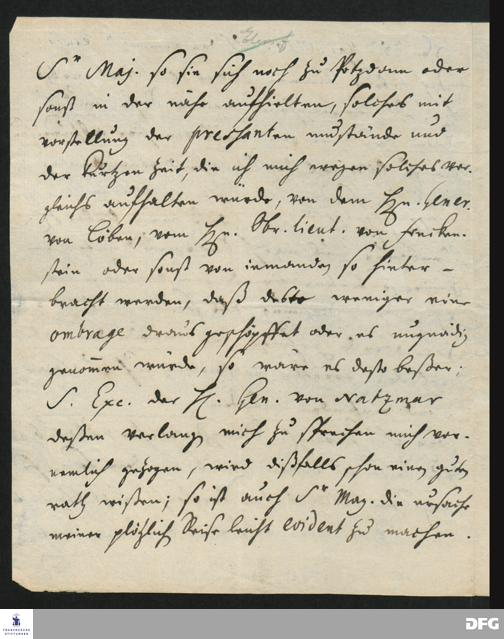 Sr Maj. so sie sich noch zu Potzdam oder
sonst in der nähe aufhielten, solches mit
vorstellung der pressanten umstände und
der kurtzen Zeit, die ich mich wegen solches ver-
gleichs aufhalten würde, von dem Hn. Gener.
von Löben, vom Hn. Obr. lieut. von Francken-
stein oder sonst von iemanden so hinter-
bracht werden, daß desto weniger eine
ombrage draus geschöpffet oder es ungnädig
genommen würde, so wäre es desto beßer;
S. Exc. der H. Gen. von Natzmar
deßen verlangen mich zu sprechen mich vor-
nemlich gezogen, wird dißfalls schon einen guten
rath wißen; so ist auch Sr Maj. die ursache
meiner plötzlich Reise leicht evident zu machen.
FRANCKESCHE STIFTUNGEN
DFG